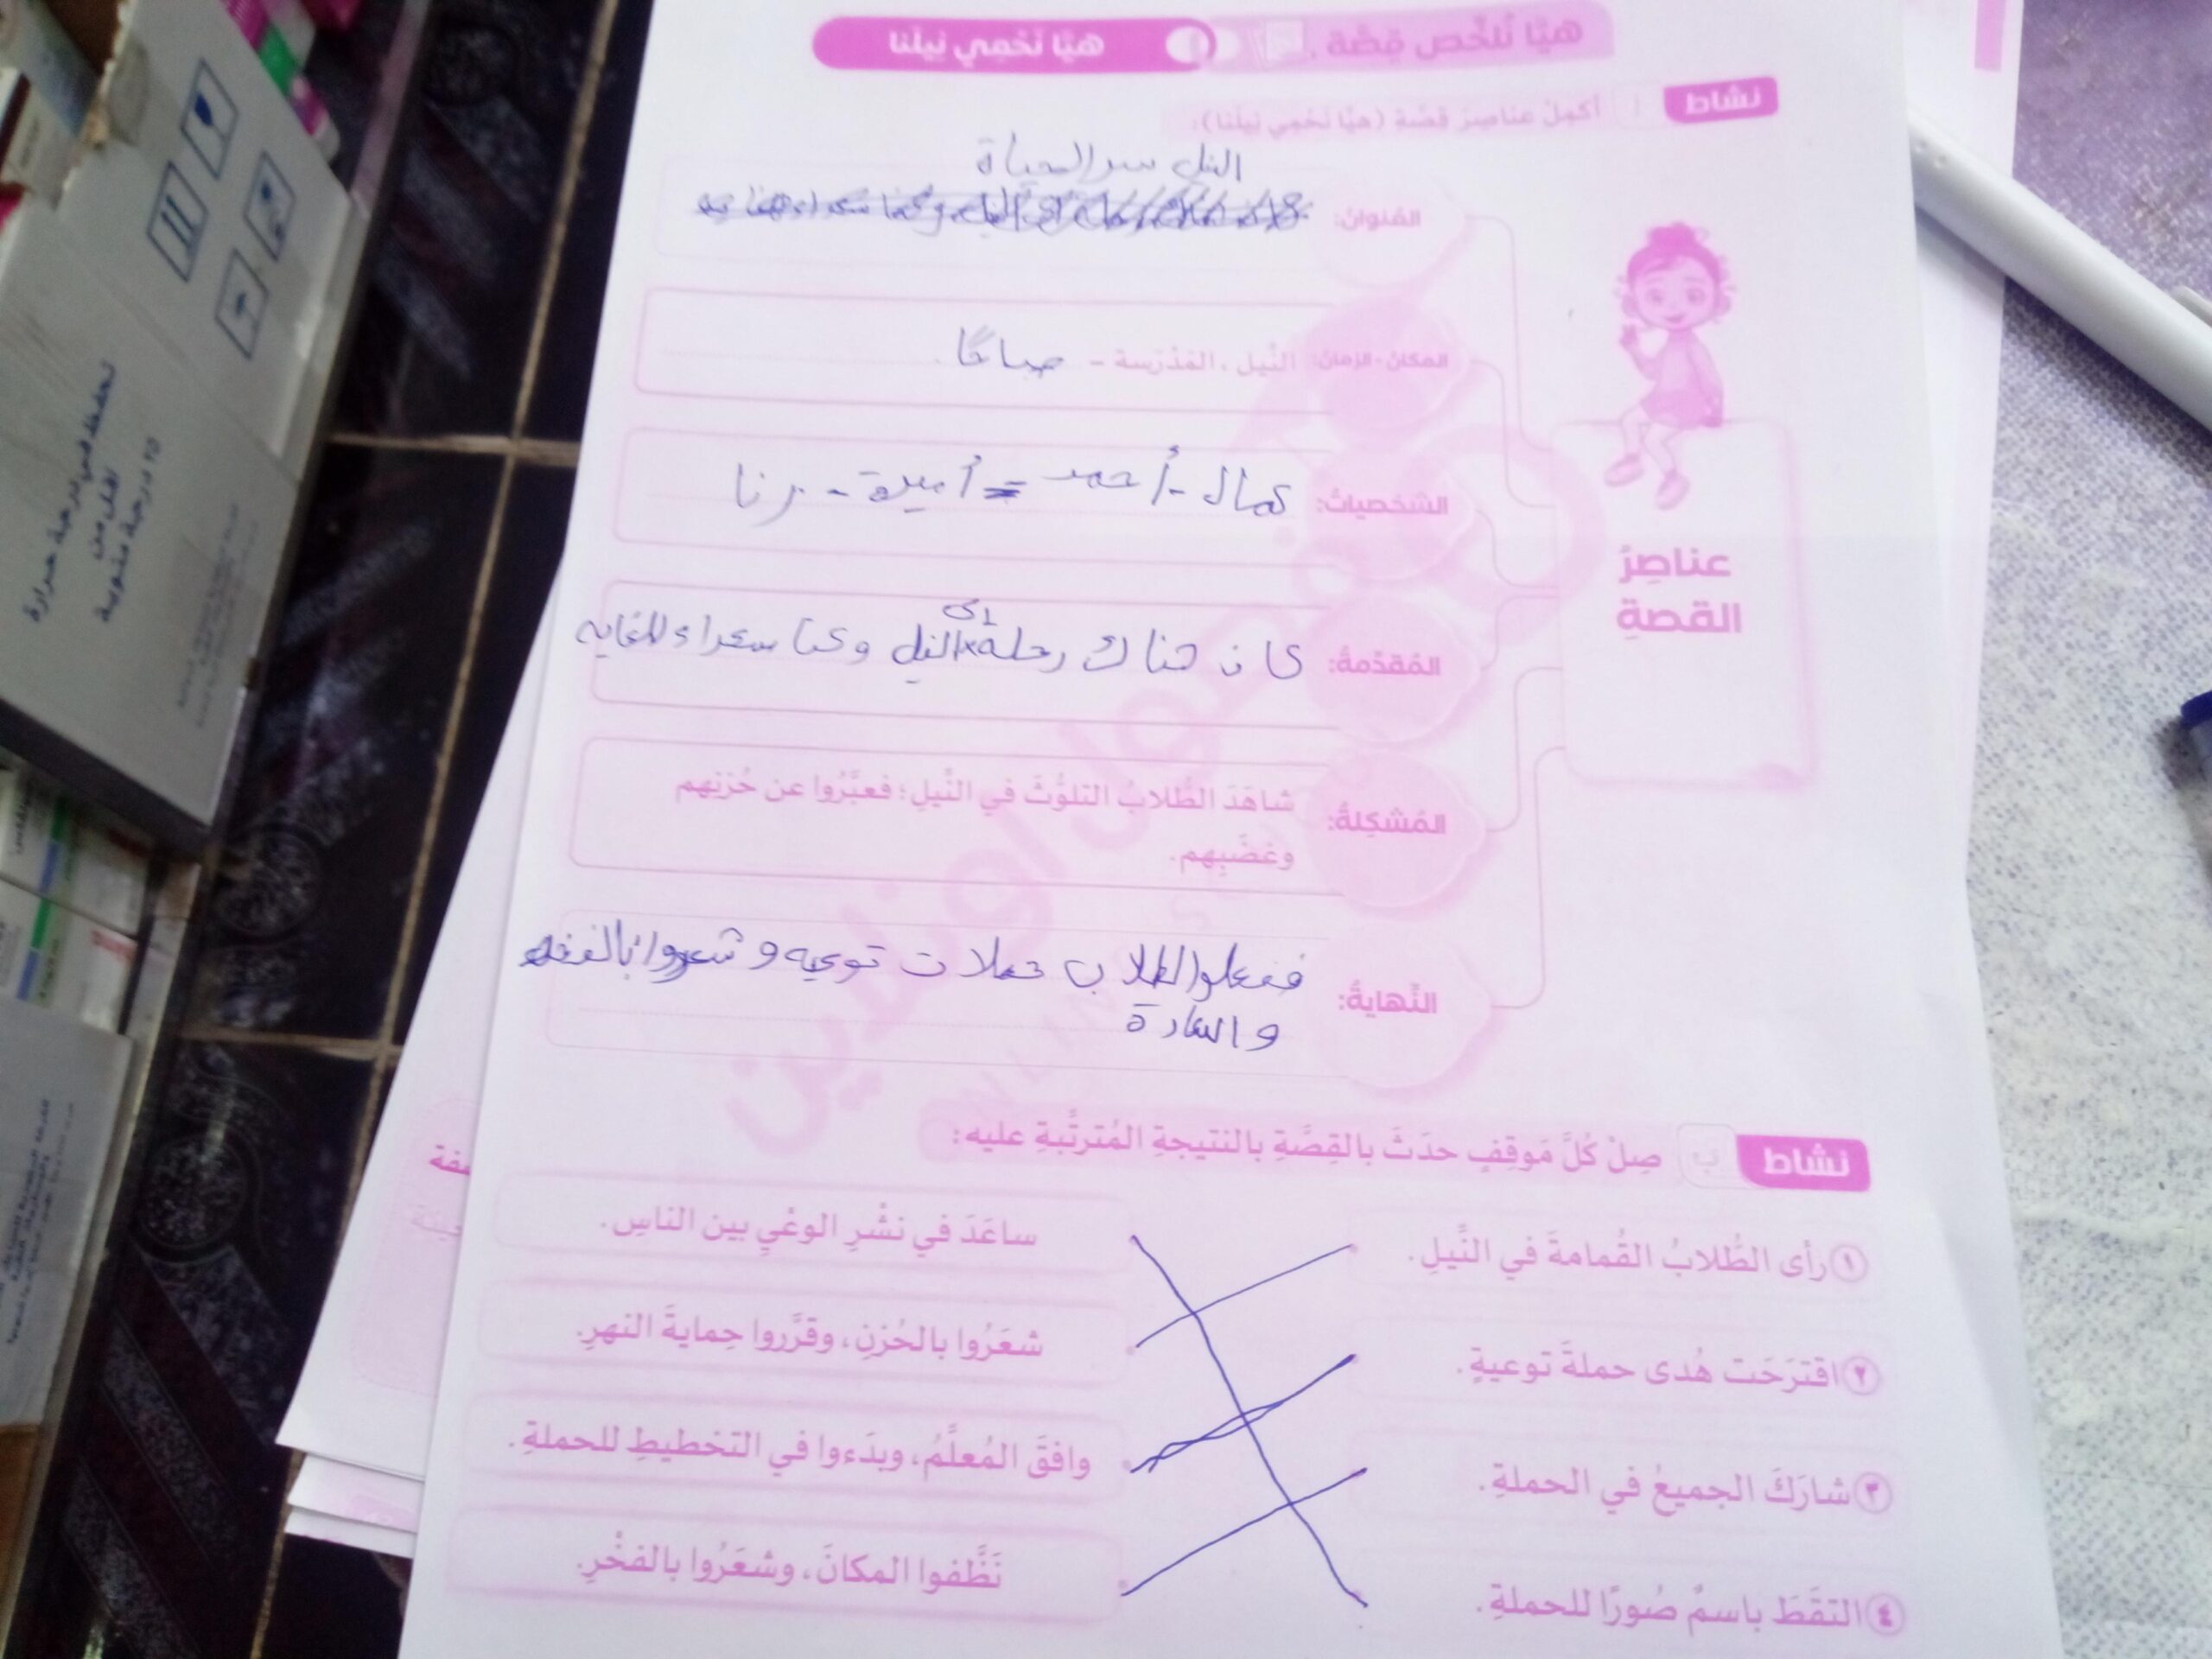 هيَّا نُلخِّص قِصَّة
هيَّا نَحْمِي نِيلَنا
نشاط أ أكمِلْ عناصرَ قِصَّةِ (هيَّا نَحْمِي نِيلَنا):
النيل سر الحياة
العُنوانُ:
المكانُ - الزمانُ: النِّيل ، المَدْرَسة - صباحًا .
الشخصياتُ: كمال - أحمد = أميرة - رنا
عناصِرُ
القصةِ
الى
المُقدِّمةُ: كان هناك رحلة النيل وكنا سعداء للغايه
المُشكِلةُ: شاهَدَ الطُّلابُ التلوُّثَ في النِّيلِ؛ فعبَّرُوا عن حُزنِهم
وغضَبِهم.
النِّهايةُ: ففعلوا الطلاب حملات توعيه و شعروا بالفخر
والسعادة
نشاط ب صِلْ كُلَّ مَوقِفٍ حدَثَ بالقِصَّةِ بالنتيجةِ المُترتِّبةِ عليه:
١ رأى الطُّلابُ القُمامةَ في النِّيلِ. ساعَدَ في نشْرِ الوعْيِ بين الناسِ.
٢ اقترَحَت هُدى حملةَ توعيةٍ. شعَرُوا بالحُزنِ، وقرَّروا حِمايةَ النهرِ.
٣ شارَكَ الجميعُ في الحملةِ. وافقَ المُعلِّمُ، وبدَءوا في التخطيطِ للحملةِ.
٤ التقَطَ باسمٌ صُورًا للحملةِ. نَظَّفوا المكانَ، وشعَرُوا بالفخْرِ.
تحفظ في درجة حرارة
أقل من
٢٥ درجة مئوية